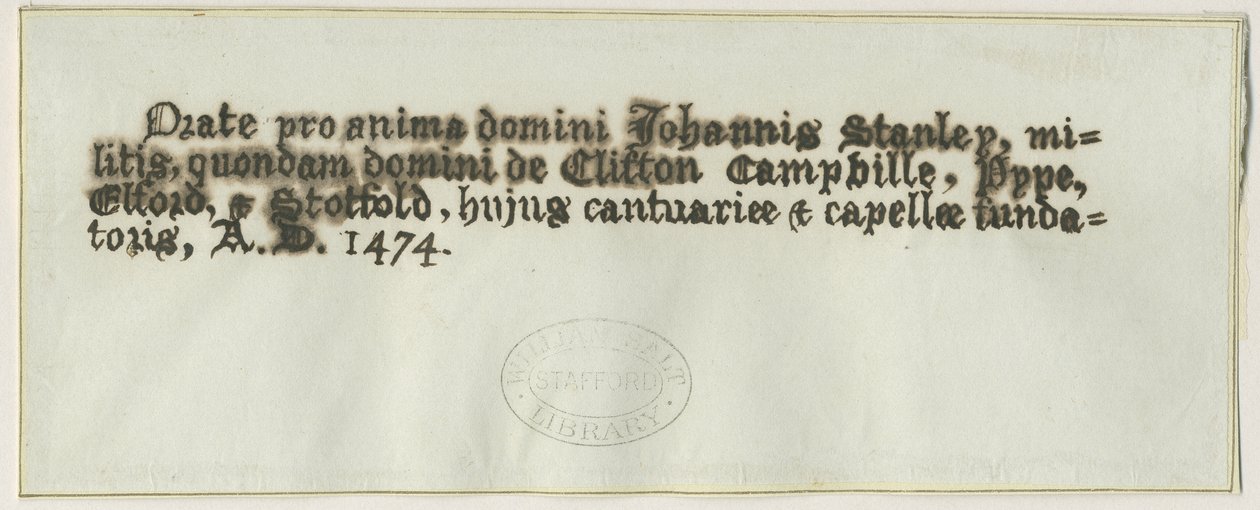 Orate pro anima domini Johannis Stanley, mi=
litis, quondam domini de Clifton Campville, Pype,
Elford, & Stotfold, hujus cantuariæ & capellæ funda=
toris, A. D. 1474.
WILLIAM SALT
STAFFORD
LIBRARY